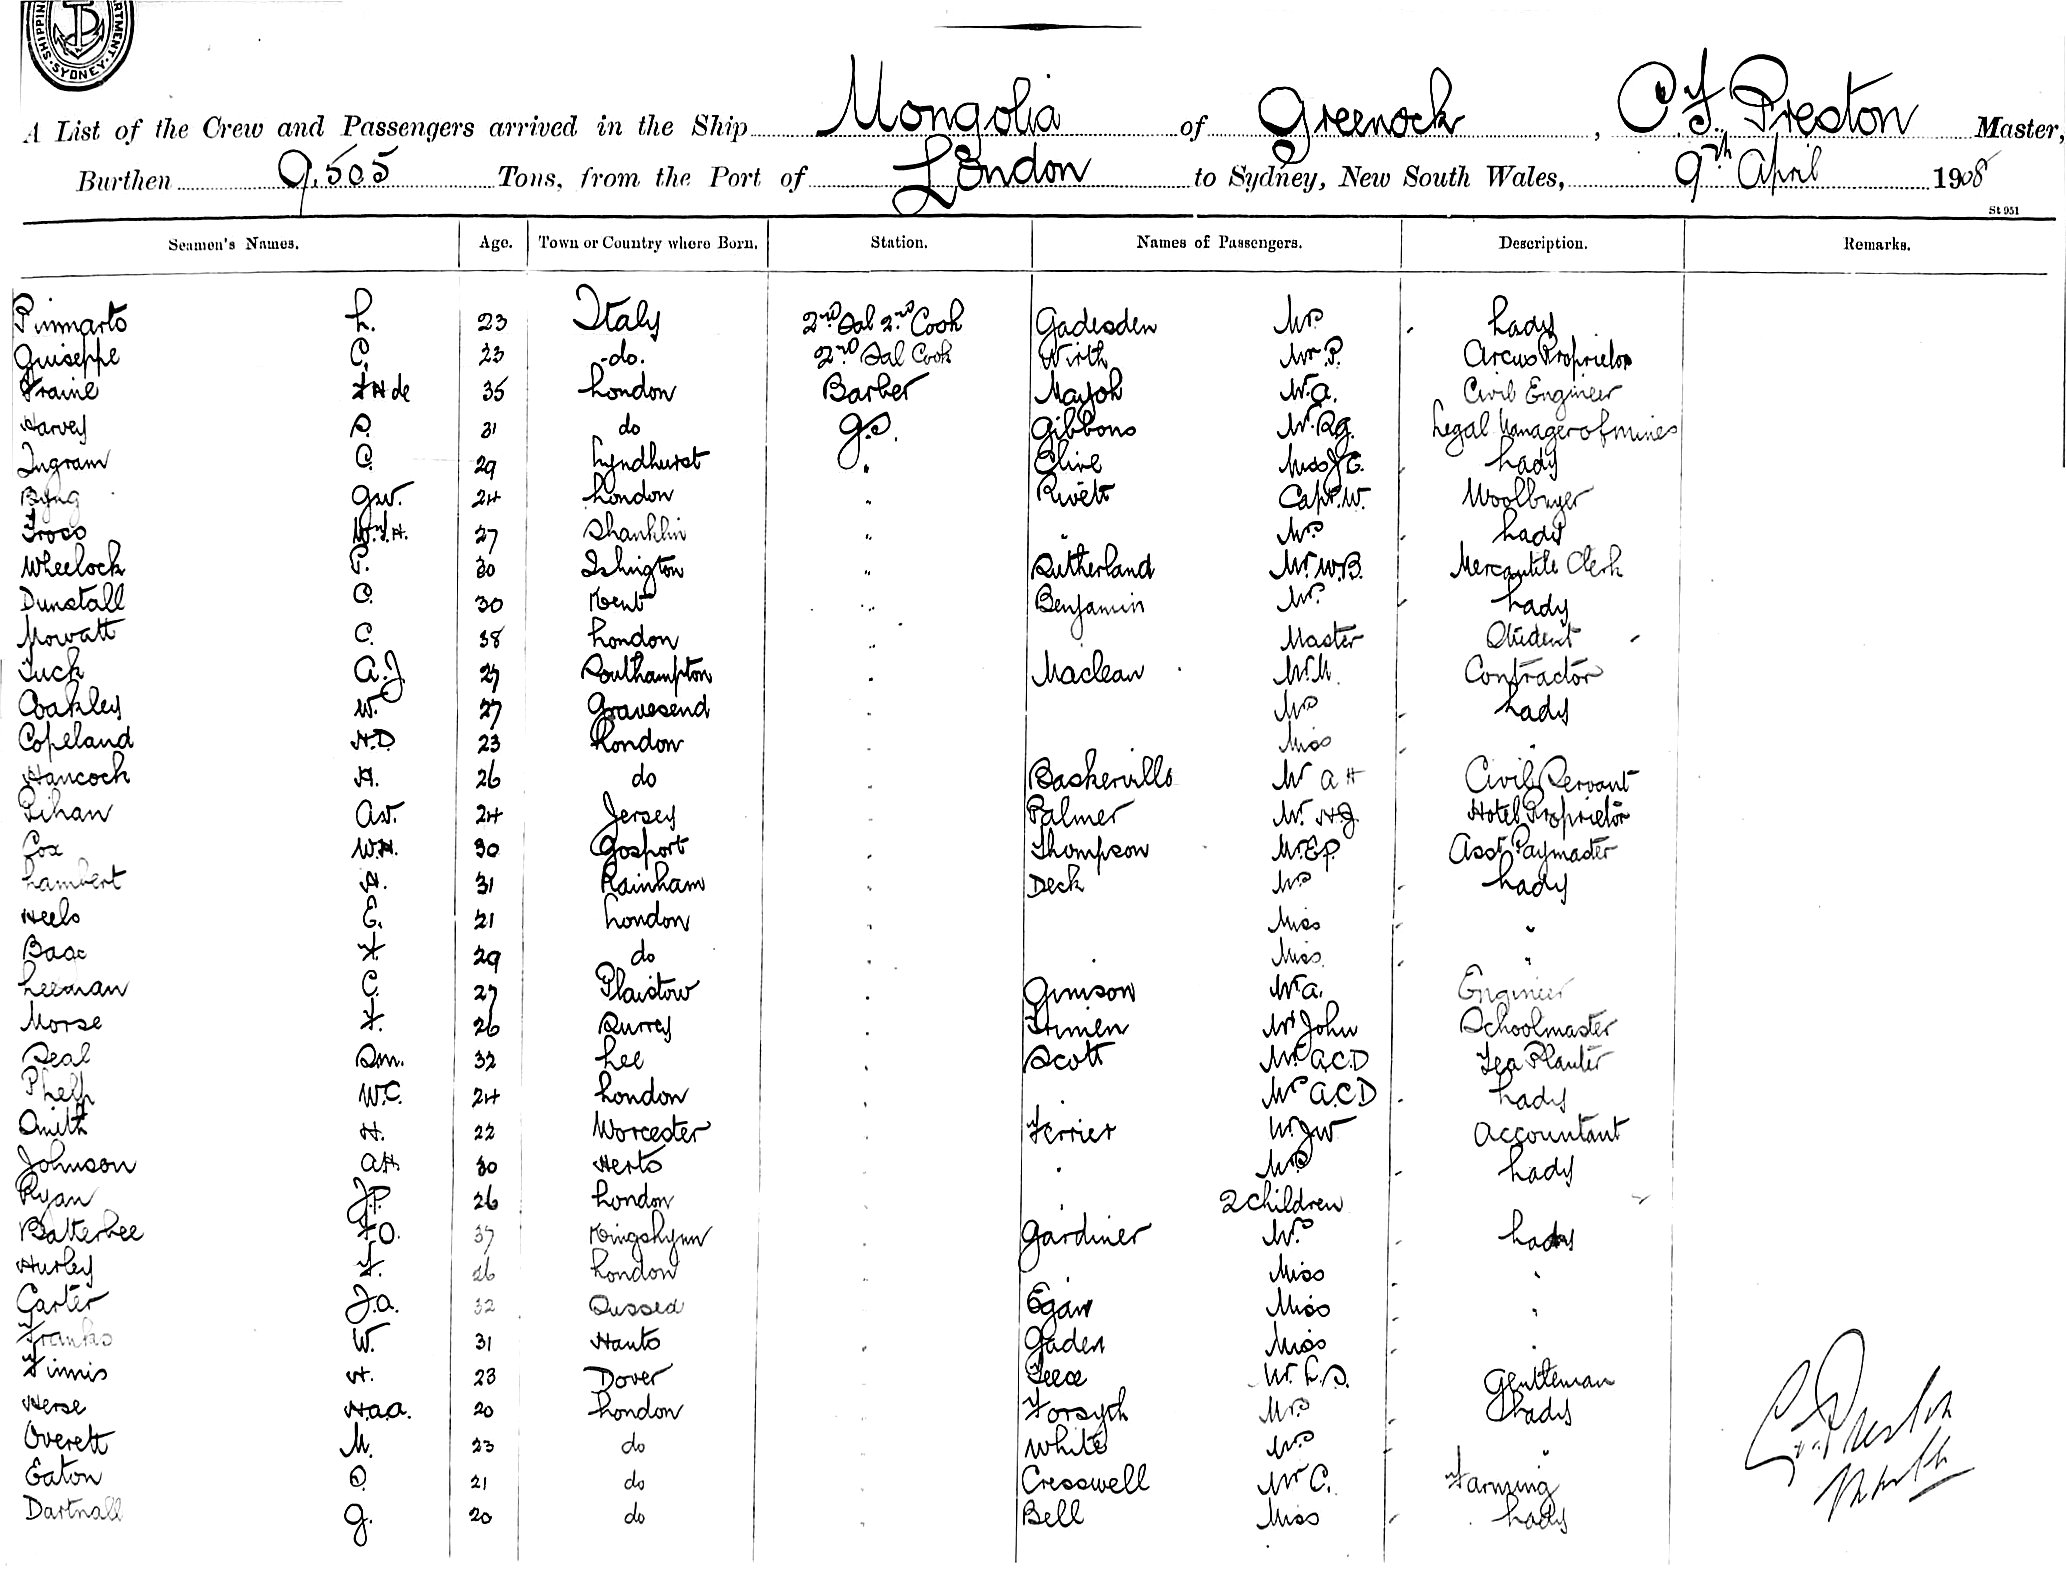 SHIPPING DEPARTMENT · SYDNEY ·
A List of the Crew and Passengers arrived in the Ship Mongolia of Greenock, C F Preston Master,
Burthen 9,505 Tons, from the Port of London to Sydney, New South Wales, 9th April 1908
St 951
Seamen's Names. Age. Town or Country where Born. Station. Names of Passengers. Description. Remarks.
L. 23 Italy 2nd Sal 2nd Cook Gadesden Mrs Lady
Guiseppe C. 23 do. 2nd Sal Cook Wirth Mr. P. Circus Proprietor
Fraine F H de 35 London Barber Mr A. Civil Engineer
Harvey S. 31 do G.S. Gibbons Mr. R.G. Legal Manager of mines
Ingram C. 29 Lyndhurst " Clive Miss J.C. Lady
Byng G.W. 24 London " Rivett Capt. W. Woolbuyer
Tross W.J.H. 27 Shanklin " " Mrs Lady
Wheelock P. 30 Islington " Sutherland Mr. W.B. Mercantile Clerk
Dunstall C. 30 Kent " Benjamin Mrs Lady
Mowatt C. 38 London " Master Student
Tuck A.J. 27 Southampton " Maclean Mr. M. Contractor
Coakley W. 27 Gravesend " Mrs Lady
Copeland H.D 23 London " Miss "
Hancock H. 26 do " Baskerville Mr A H Civil Servant
Pihan A.W. 24 Jersey " Palmer Mr. H.J. Hotel Proprietor
Cox W.H. 30 Gosport " Thompson Mr. E.P. Asst Paymaster
Lambert H. 31 Rainham " Deck Mrs Lady
Heels E. 21 London " Miss "
F 29 do " " Miss "
Leeman C. 27 Plaistow " Gimson Mr A. Engineer
Morse F. 26 Surrey " Trimen Mr John Schoolmaster
Seal S.M. 32 Lee " Scott Mr. A.C.D Tea Planter
Phelp W.C. 24 London " " Mrs A.C.D Lady
Smith H. 22 Worcester " Ferrier Mr J W Accountant
Johnson A.H. 30 Herts " " Mrs Lady
Ryan J.P. 26 London " " 2 Children
Batterbee F O. 37 Kings Lynn " Gardiner Mrs Lady
Hurley F. 26 London " " Miss "
Carter J.A. 32 Sussex " Egan Miss "
Franks W. 31 Hants " Gaden Miss "
Finnis H. 23 Dover " Mr. L.S. Gentleman
Herse H.A.A. 20 London " Forsyth Mrs Lady
Overett M. 23 do White Mrs "
Eaton O. 21 do Cresswell Mr C. Farming
Dartnall G. 20 do " Bell Miss Lady
C. F. Preston
Master